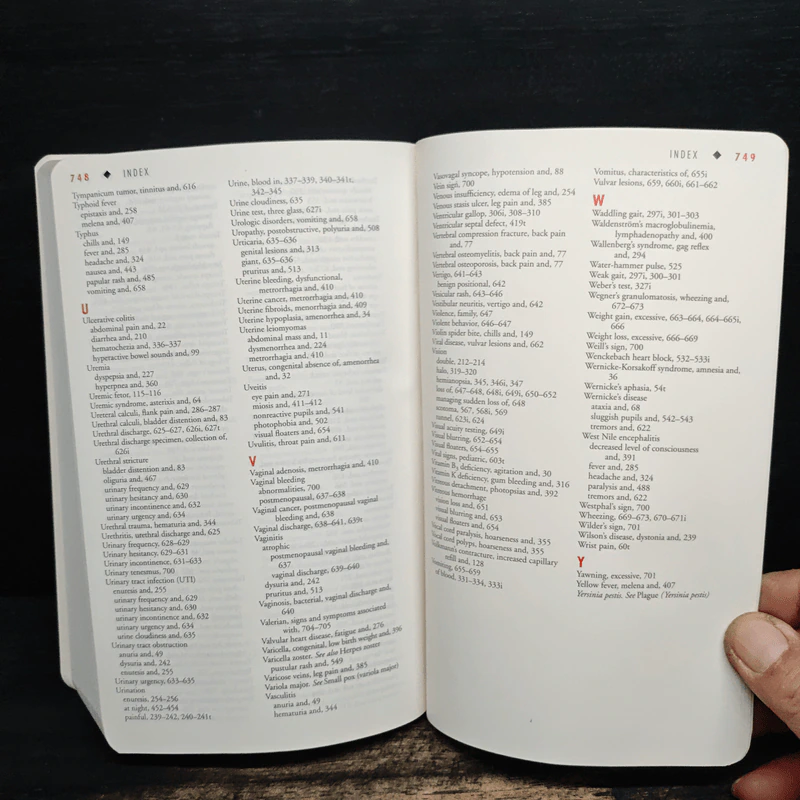 748 ◆ INDEX
Tympanicum tumor, tinnitus and, 616
Typhoid fever
epistaxis and, 258
melena and, 407
Typhus
chills and, 149
fever and, 285
headache and, 324
nausea and, 443
papular rash and, 485
vomiting and, 658
U
Ulcerative colitis
abdominal pain and, 22
diarrhea and, 210
hematochezia and, 336–337
hyperactive bowel sounds and, 99
Uremia
dyspepsia and, 227
hyperpnea and, 360
Uremic fetor, 115–116
Uremic syndrome, asterixis and, 64
Ureteral calculi, flank pain and, 286–287
Urethral calculi, bladder distention and, 83
Urethral discharge, 625–627, 626i, 627t
Urethral discharge specimen, collection of,
626i
Urethral stricture
bladder distention and, 83
oliguria and, 467
urinary frequency and, 629
urinary hesitancy and, 630
urinary incontinence and, 632
urinary urgency and, 634
Urethral trauma, hematuria and, 344
Urethritis, urethral discharge and, 625
Urinary frequency, 628–629
Urinary hesitancy, 629–631
Urinary incontinence, 631–633
Urinary tenesmus, 700
Urinary tract infection (UTI)
enuresis and, 255
urinary frequency and, 629
urinary hesitancy and, 630
urinary incontinence and, 632
urinary urgency and, 634
urine cloudiness and, 635
Urinary tract obstruction
anuria and, 49
dysuria and, 242
enuresis and, 255
Urinary urgency, 633–635
Urination
enuresis, 254–256
at night, 452–454
painful, 239–242, 240–241t
Urine, blood in, 337–339, 340–341t,
342–345
Urine cloudiness, 635
Urine test, three glass, 627i
Urologic disorders, vomiting and, 658
Uropathy, postobstructive, polyuria and, 508
Urticaria, 635–636
genital lesions and, 313
giant, 635–636
pruritus and, 513
Uterine bleeding, dysfunctional,
metrorrhagia and, 410
Uterine cancer, metrorrhagia and, 410
Uterine fibroids, menorrhagia and, 409
Uterine hypoplasia, amenorrhea and, 34
Uterine leiomyomas
abdominal mass and, 11
dysmenorrhea and, 224
metrorrhagia and, 410
Uterus, congenital absence of, amenorrhea
and, 32
Uveitis
eye pain and, 271
miosis and, 411–412
nonreactive pupils and, 541
photophobia and, 502
visual floaters and, 654
Uvulitis, throat pain and, 611
V
Vaginal adenosis, metrorrhagia and, 410
Vaginal bleeding
abnormalities, 700
postmenopausal, 637–638
Vaginal cancer, postmenopausal vaginal
bleeding and, 638
Vaginal discharge, 638–641, 639t
Vaginitis
atrophic
postmenopausal vaginal bleeding and,
637
vaginal discharge, 639–640
dysuria and, 242
pruritus and, 513
Vaginosis, bacterial, vaginal discharge and,
640
Valerian, signs and symptoms associated
with, 704–705
Valvular heart disease, fatigue and, 276
Varicella, congenital, low birth weight and, 396
Varicella zoster. See also Herpes zoster
pustular rash and, 549
Varicose veins, leg pain and, 385
Variola major. See Small pox (variola major)
Vasculitis
anuria and, 49
hematuria and, 344
INDEX ◆ 749
Vasovagal syncope, hypotension and, 88
Vein sign, 700
Venous insufficiency, edema of leg and, 254
Venous stasis ulcer, leg pain and, 385
Ventricular gallop, 306i, 308–310
Ventricular septal defect, 419t
Vertebral compression fracture, back pain
and, 77
Vertebral osteomyelitis, back pain and, 77
Vertebral osteoporosis, back pain and, 77
Vertigo, 641–643
benign positional, 642
Vesicular rash, 643–646
Vestibular neuritis, vertigo and, 642
Violence, family, 647
Violent behavior, 646–647
Violin spider bite, chills and, 149
Viral disease, vulvar lesions and, 662
Vision
double, 212–214
halo, 319–320
hemianopsia, 345, 346i, 347
loss of, 647–648, 648i, 649i, 650–652
managing sudden loss of, 648
scotoma, 567, 568i, 569
tunnel, 623i, 624
Visual acuity testing, 649i
Visual blurring, 652–654
Visual floaters, 654–655
Vital signs, pediatric, 603t
Vitamin B₃ deficiency, agitation and, 30
Vitamin K deficiency, gum bleeding and, 316
Vitreous detachment, photopsias and, 392
Vitreous hemorrhage
vision loss and, 651
visual blurring and, 653
visual floaters and, 654
Vocal cord paralysis, hoarseness and, 355
Vocal cord polyps, hoarseness and, 355
Volkmann's contracture, increased capillary
refill and, 128
Vomiting, 655–659
of blood, 331–334, 333i
Vomitus, characteristics of, 655i
Vulvar lesions, 659, 660i, 661–662
W
Waddling gait, 297i, 301–303
Waldenström's macroglobulinemia,
lymphadenopathy and, 400
Wallenberg's syndrome, gag reflex
and, 294
Water-hammer pulse, 525
Weak gait, 297i, 300–301
Weber's test, 327i
Wegner's granulomatosis, wheezing and,
672–673
Weight gain, excessive, 663–664, 664–665i,
666
Weight loss, excessive, 666–669
Weill's sign, 700
Wenckebach heart block, 532–533i
Wernicke-Korsakoff syndrome, amnesia and,
36
Wernicke's aphasia, 54t
Wernicke's disease
ataxia and, 68
sluggish pupils and, 542–543
tremors and, 622
West Nile encephalitis
decreased level of consciousness
and, 391
fever and, 285
headache and, 324
paralysis and, 488
tremors and, 622
Westphal's sign, 700
Wheezing, 669–673, 670–671i
Wilder's sign, 701
Wilson's disease, dystonia and, 239
Wrist pain, 60t
Y
Yawning, excessive, 701
Yellow fever, melena and, 407
Yersinia pestis. See Plague (Yersinia pestis)